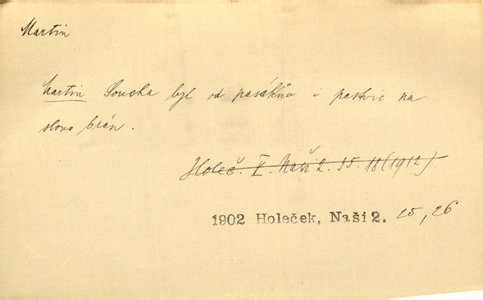 Martin
Martin Soucha byl od pasáků i pastvic na
slovo brán.
Holeč. II. Naši 2. 35. 18 (1912)
1902 Holeček, Naši 2. 25, 26